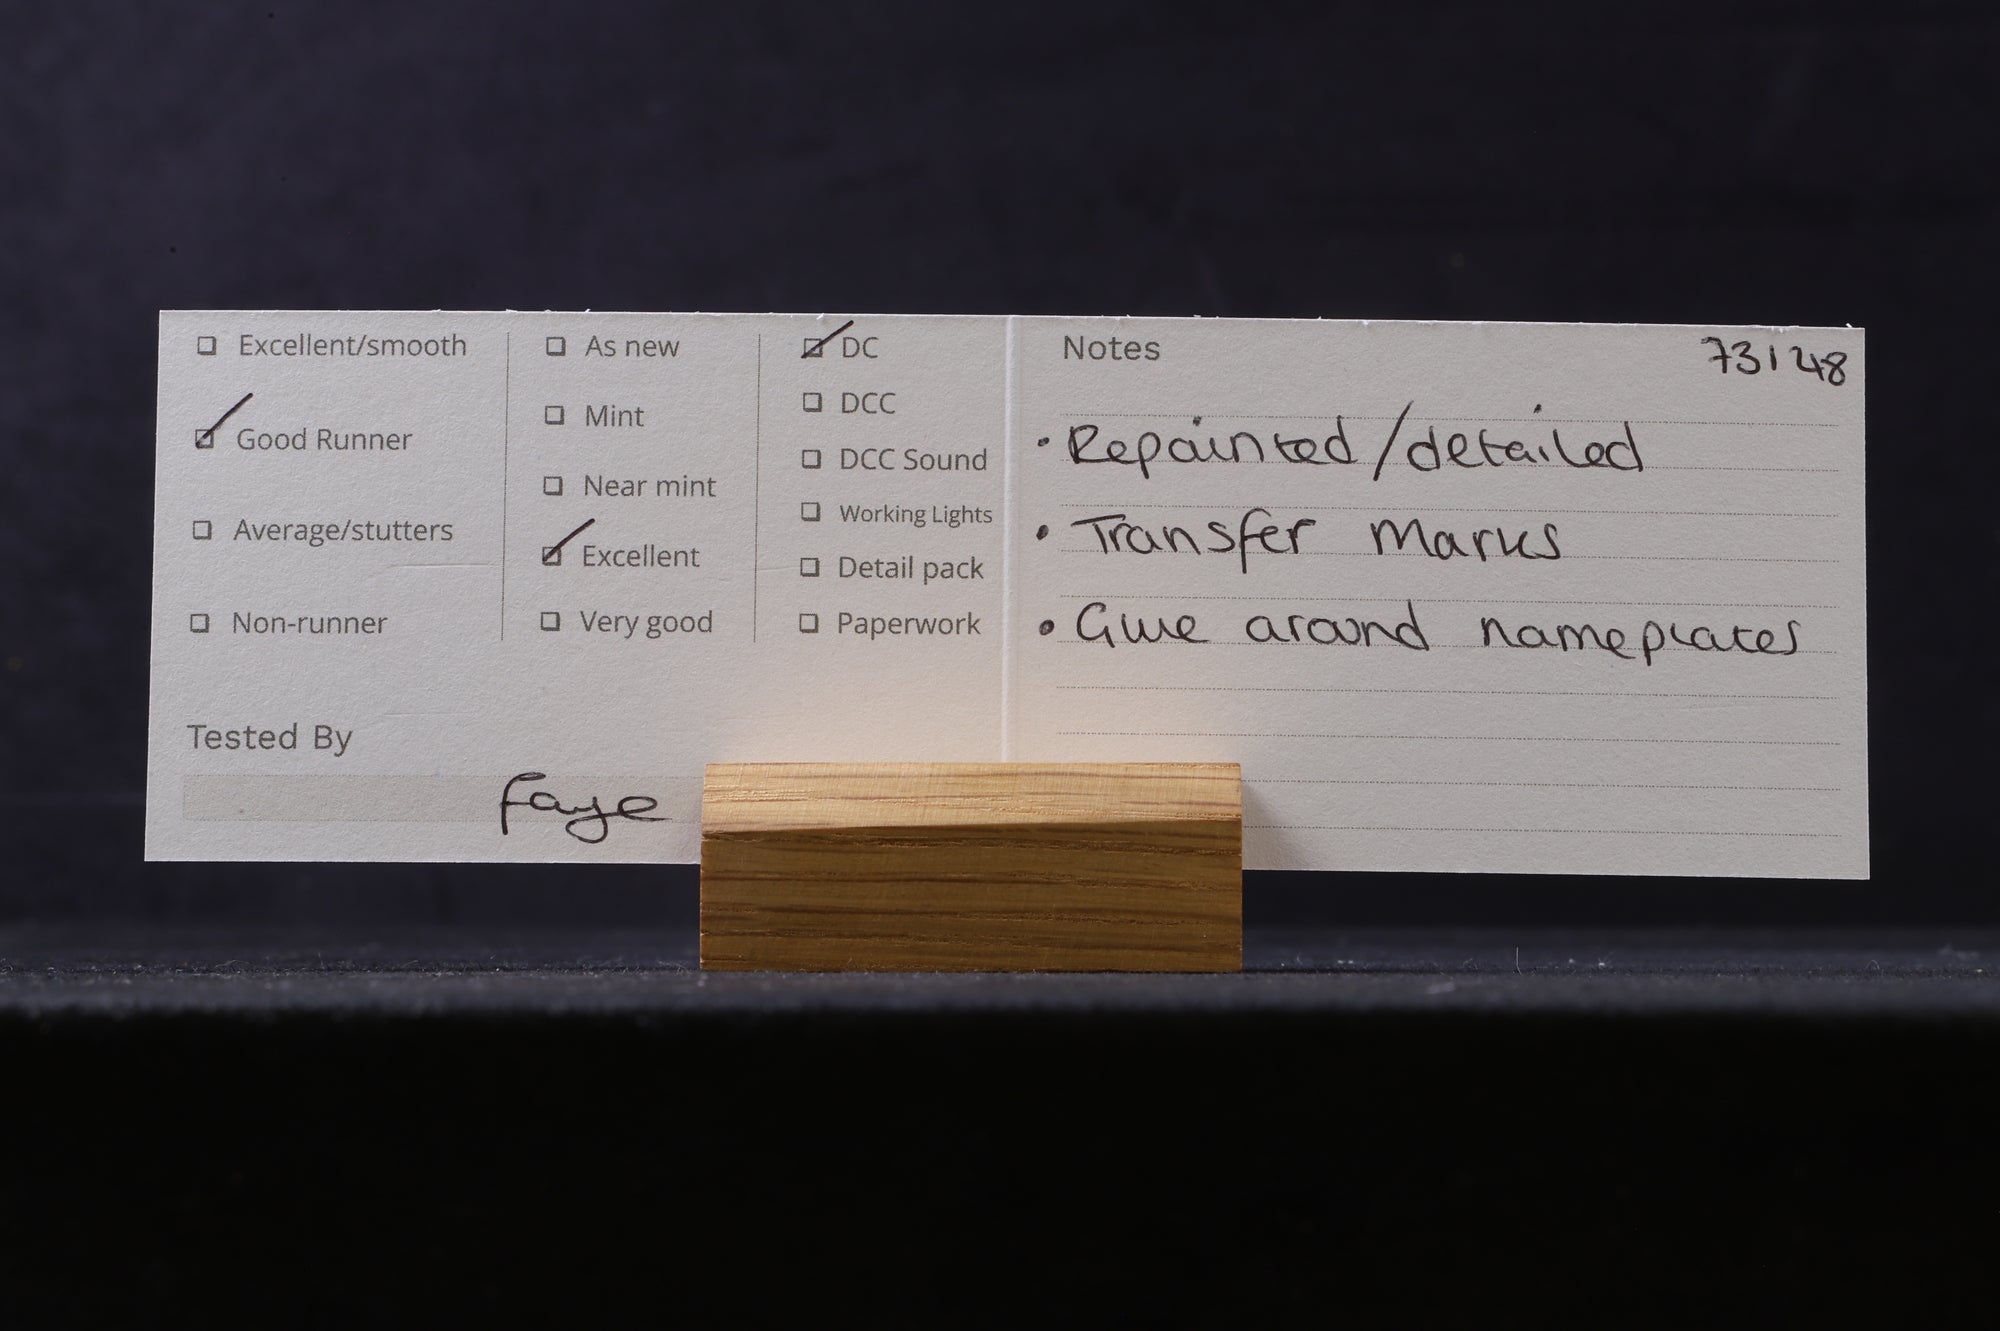 Excellent/smooth
Good Runner
Average/stutters
Non-runner
As new
Mint
Near mint
Excellent
Very good
DC
DCC
DCC Sound
Working Lights
Detail pack
Paperwork
Tested By
Faye
Notes
73148
• Repainted/detailed
• Transfer Marks
• Glue around nameplates